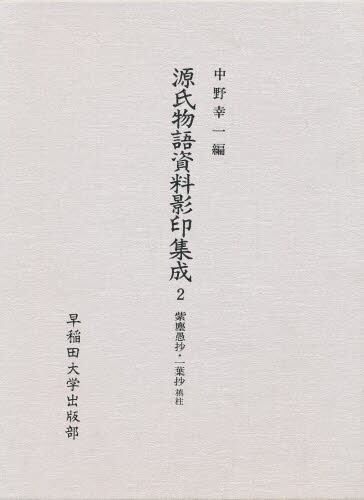 中野幸一編
源氏物語資料影印集成
2
紫塵愚抄・一葉抄 桐壺
早稲田大学出版部